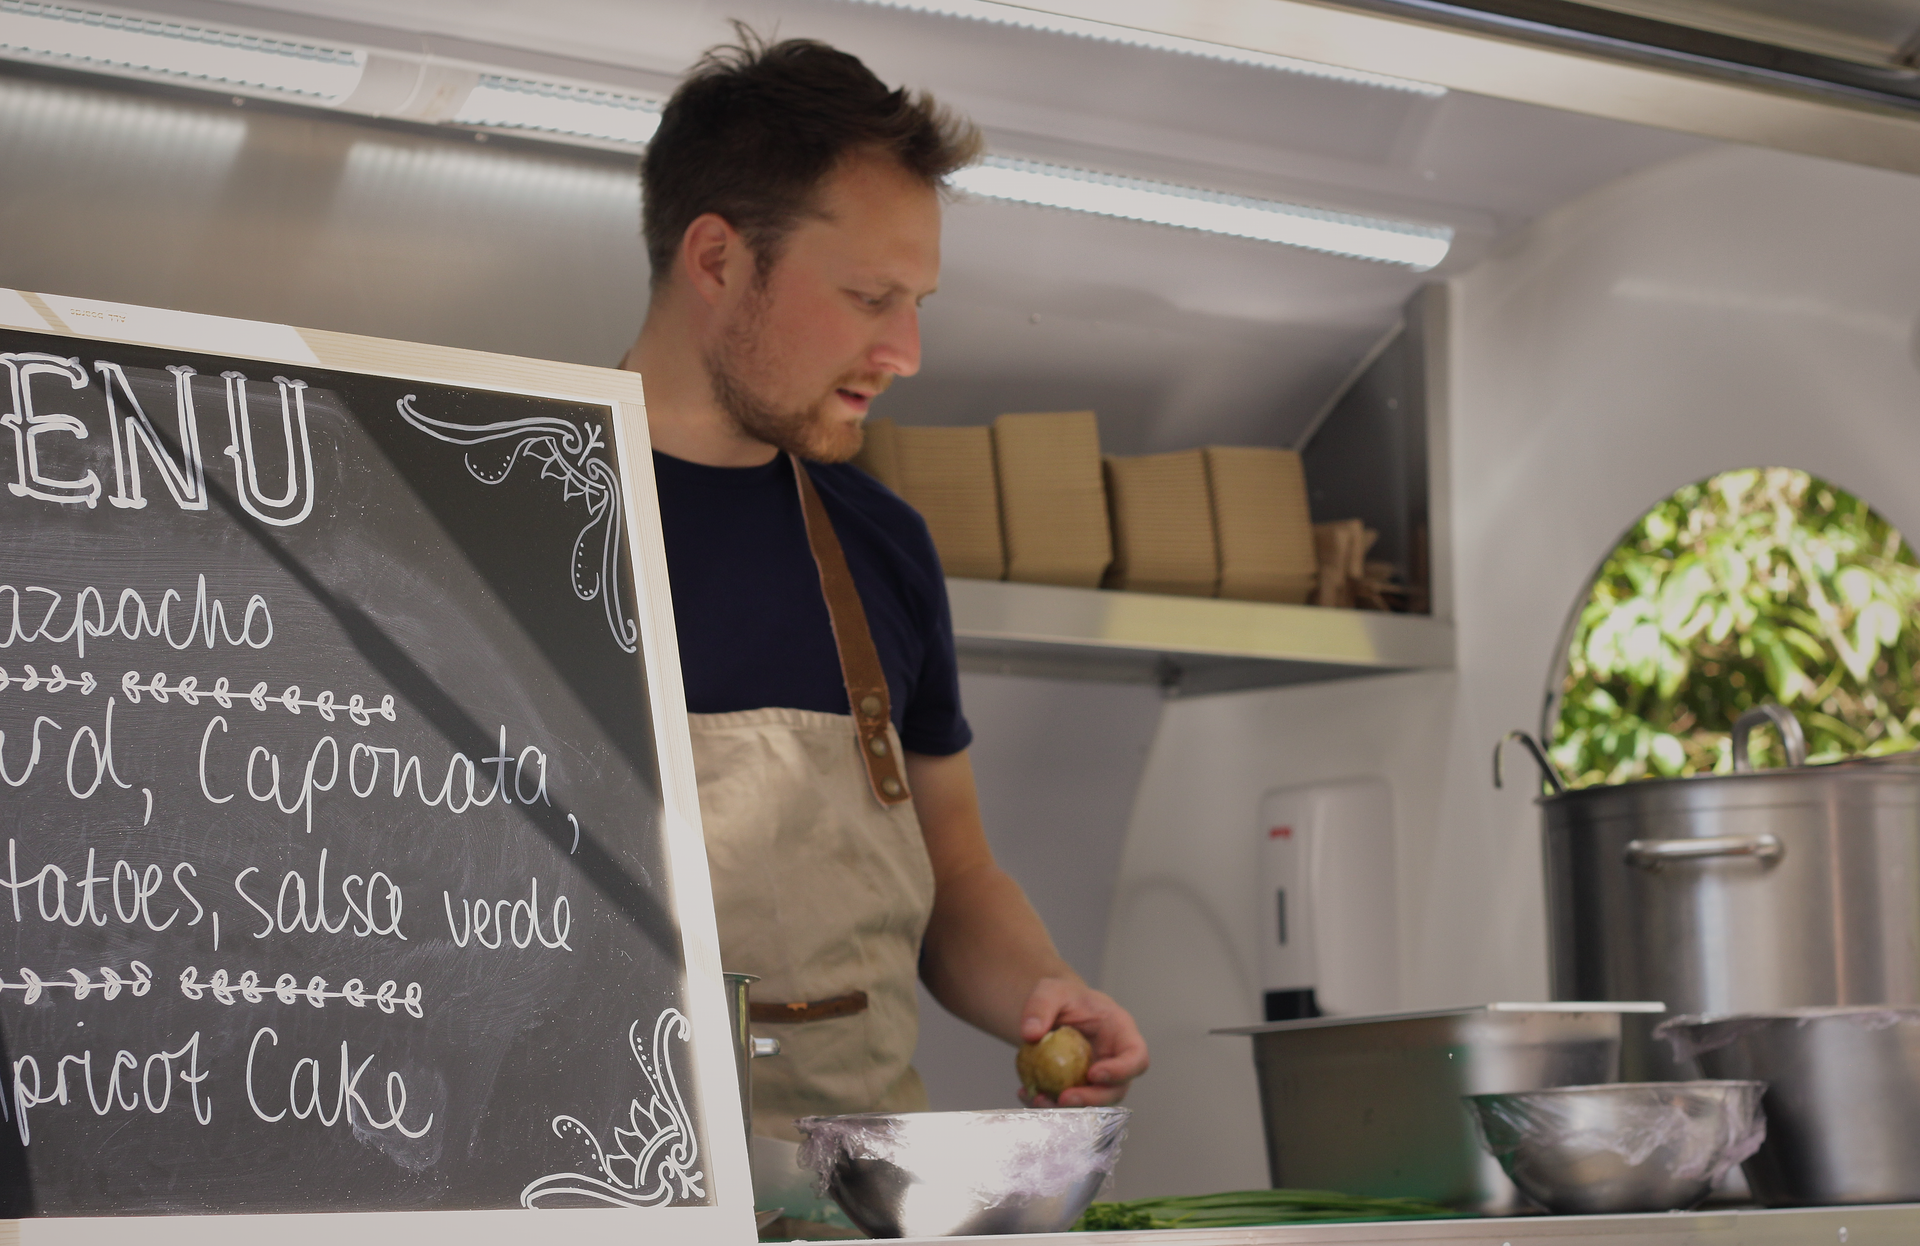 ENU
azpacho
urd, Caponata,
tatoes, salsa verde
pricot Cake